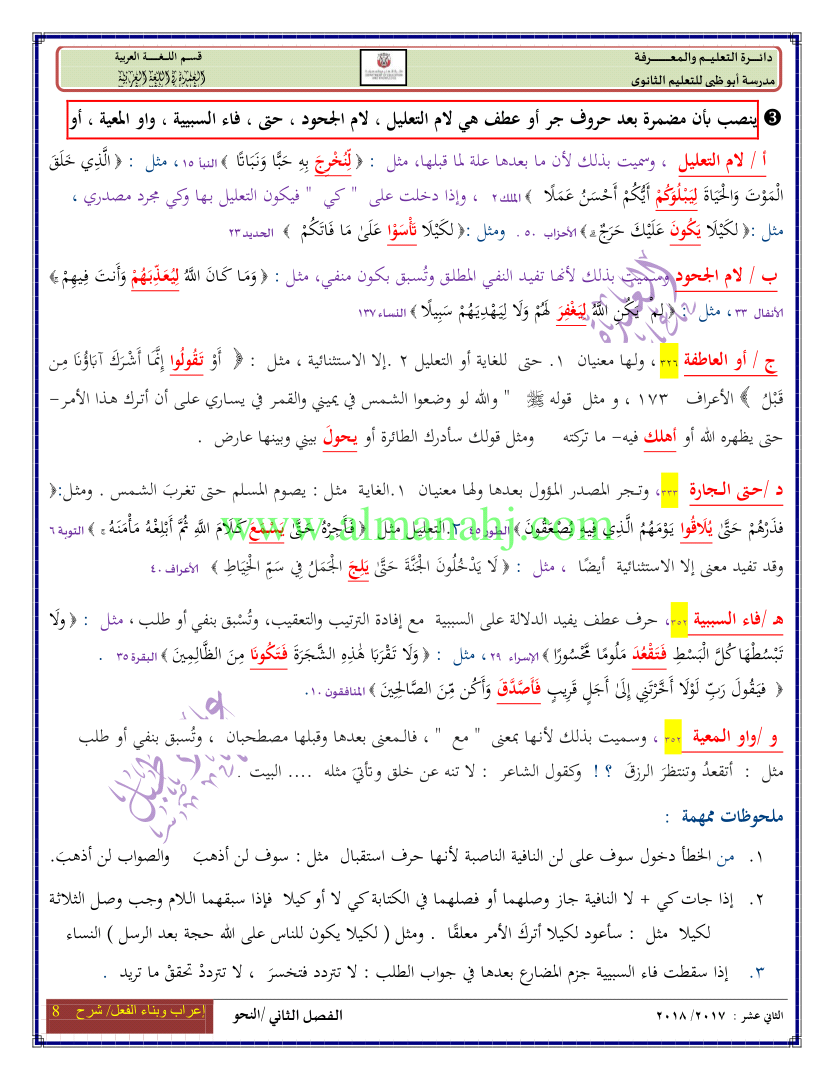 دائــرة التعليـم والمعـــــرفة
مدرسة أبو ظبي للتعليم الثانوي
قسـم اللـغـــة العربية
❸ ينصب بأن مضمرة بعد حروف جر أو عطف هي لام التعليل ، لام الجحود ، حتى ، فاء السببية ، واو المعية ، أو
أ / لام التعليل ، وسميت بذلك لأن ما بعدها علة لما قبلها، مثل : ﴿ لِّنُخْرِجَ بِهِ حَبًّا وَنَبَاتًا ﴾ النبأ ١٥ ، مثل : ﴿ الَّذِي خَلَقَ
الْمَوْتَ وَالْحَيَاةَ لِيَبْلُوَكُمْ أَيُّكُمْ أَحْسَنُ عَمَلًا ﴾ الملك٢ ، وإذا دخلت على " كي " فيكون التعليل بـها وكي مجرد مصدري ،
مثل :﴿ لكَيْلَا يَكُونَ عَلَيْكَ حَرَجٌ ﴾ الأحزاب ٥٠ . ومثل :﴿ لكَيْلَا تَأْسَوْا عَلَىٰ مَا فَاتَكُمْ ﴾ الحديد ٢٣
ب / لام الجحود وسـميت بذلك لأنـها تفيـد النفـي المطلـق وتُسـبق بكـون منفـي، مثل : ﴿ وَمَا كَانَ اللَّهُ لِيُعَذِّبَهُمْ وَأَنتَ فِيهِمْ ﴾
الأنفال ٣٣ ، مثل : ﴿ لمْ يَكُنِ اللَّهُ لِيَغْفِرَ لَهُمْ وَلَا لِيَهْدِيَهُمْ سَبِيلًا ﴾ النساء ١٣٧
ج / أو العاطفة ٣٢٦ ، ولـها معنيان ١. حتى للغاية أو التعليل ٢ .إلا الاستثنائية ، مثل : ﴿ أَوْ تَقُولُوا إِنَّمَا أَشْرَكَ آبَاؤُنَا مِن
قَبْلُ ﴾ الأعراف ١٧٣ ، و مثل قوله ﷺ " والله لو وضعوا الشمس في يميني والقمر في يساري على أن أترك هذا الأمر–
حتى يظهره الله أو أهلك فيه– ما تركته ومثل قولك سأدرك الطائرة أو يحولَ بيني وبينها عارض .
د /حتى الـجارة ٣٣٣، وتـجر المصدر المؤول بعدها ولها معنيان ١.الغاية مثل : يصوم المسلم حتى تغربَ الشمس . ومثل:﴿
فَذَرْهُمْ حَتَّىٰ يُلَاقُوا يَوْمَهُمُ الَّذِي فِيهِ يُصْعَقُونَ ﴾ الطور٤٥ ٢.التعليل مثل ﴿ فَأَجِرْهُ حَتَّىٰ يَسْمَعَ كَلَامَ اللَّهِ ثُمَّ أَبْلِغْهُ مَأْمَنَهُ ﴾ التوبة ٦
www.almanahj.com
وقد تفيد معنى إلا الاستثنائية أيضًا ، مثل : ﴿ لَا يَدْخُلُونَ الْجَنَّةَ حَتَّىٰ يَلِجَ الْجَمَلُ فِي سَمِّ الْخِيَاطِ ﴾ الأعراف ٤٠
هـ /فاء السببية ٣٥٢، حرف عطف يفيد الدلالة على السببية مع إفادة الترتيب والتعقيب، وتُسْبق بنفي أو طلب ، مثل : ﴿ ولَا
تَبْسُطْهَا كُلَّ الْبَسْطِ فَتَقْعُدَ مَلُومًا مَّحْسُورًا ﴾ الإسراء ٢٩ ، مثل : ﴿ وَلَا تَقْرَبَا هَٰذِهِ الشَّجَرَةَ فَتَكُونَا مِنَ الظَّالِمِينَ ﴾ البقرة ٣٥ .
﴿ فيَقُولَ رَبِّ لَوْلَا أَخَّرْتَنِي إِلَىٰ أَجَلٍ قَرِيبٍ فَأَصَّدَّقَ وَأَكُن مِّنَ الصَّالِحِينَ ﴾ المنافقون ١٠.
و /واو الـمعية ٣٥٢ ، وسـميت بذلك لأنـها بمعنى " مع " ، فالـمعنى بعدها وقبلها مصطحبان ، وتُسبق بنفي أو طلب
مثل : أتقعدُ وتنتظرَ الرزقَ ؟ ! وكقول الشاعر : لا تنه عن خلق وتأتيَ مثله .... البيت .
ملحوظات ممهمة :
١. من الخطأ دخول سوف على لن النافية الناصبة لأنـها حرف استقبال مثل : سوف لن أذهبَ والصواب لن أذهبَ.
٢. إذا جات كي + لا النافية جاز وصلهما أو فصلهما في الكتابة كي لا أو كيلا فإذا سبقهما اللام وجب وصل الثلاثة
لكيلا مثل : سأعود لكيلا أتركَ الأمر معلقًا . ومثل ( لكيلا يكون للناس على الله حجة بعد الرسل ) النساء
٣. إذا سقطت فاء السببية جزم المضارع بعدها في جواب الطلب : لا تتردد فتخسرَ ، لا تترددْ تحققْ ما تريد .
الثاني عشر : ٢٠١٧/ ٢٠١٨
الفصل الثاني /النحو
إعراب وبناء الفعل/ شرح 8